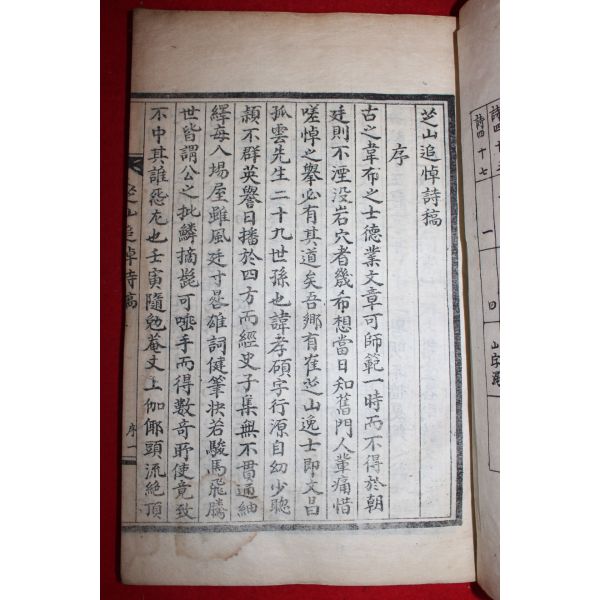 芝山追悼詩稿
序
古之韋布之士德業文章可師範一時而不得於朝
廷則不湮没岩穴者幾希想當日知舊門人輩痛惜
嗟悼之擧必有其道矣吾鄕有崔芝山逸士即文昌
孤雲先生二十九世孫也諱孝碩字行源自幼少聦
頴不群英譽日播於四方而經史子集無不貫通紬
繹每入場屋雖風廷寸晷雄詞健筆快若駿馬飛騰
世皆謂公之批鱗摘髭可唾手而得數奇所使竟致
不中其誰怨尤也壬寅隨勉菴丈上伽倻頭流絶頂
芝山追悼詩稿
序一
詩四十七
一